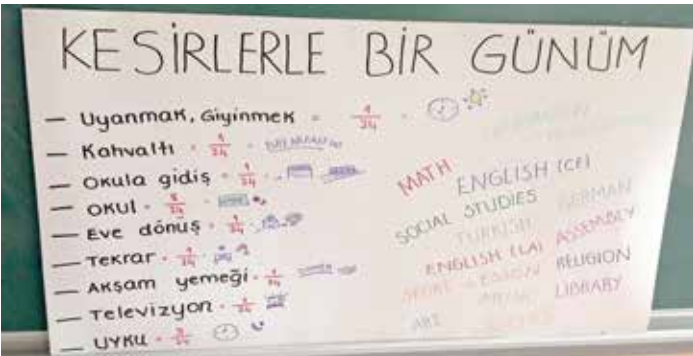 KESİRLERLE BİR GÜNÜM
— Uyanmak, Giyinmek = 1/24
— Kahvaltı = 1/24
— Okula gidiş = 1/24
— OKUL = 8/24
— Eve dönüş = 1/24
— Tekrar = 1/24
— Akşam yemeği = 1/24
— Televizyon = 1/24
— UYKU =
MATH
ENGLISH (CE)
SOCIAL STUDIES
TURKISH
GERMAN
ENGLISH (LA)
ASSEMBLY
RELIGION
LIBRARY
ART